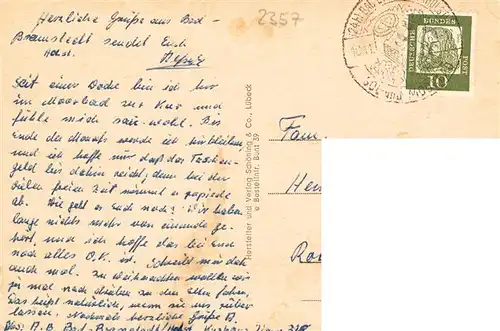 Herzliche Grüße aus Bad-
Bramstedt sendet Euch
Holst.
2357
DEUTSCHE
BUNDES
POST
10
Seit einer Woche bin ich hier
im Moorbad zur Kur und
fühle mich sehr wohl. Bis
Ende des Monats werde ich hierbleiben
und ich hoffe nur daß das Taschen-
geld bis dahin reicht, denn bei der
vielen freien Zeit nimmt es rapiede
ab. Wie geht es euch noch? Wir haben
lange nichts mehr von einander ge-
hört, und ich hoffe das bei Euch
noch alles O.K. ist. Schreibt mir doch
auch mal. Zu Weihnachten wollten wir
ja mal nach drüben zu den Alten fahren,
Das heißt natürlich, wenn sie uns rüber
lassen. Nochmals herzliche Grüße A.
Abs: A.B. Bad-Bramstedt/Holst. Kurhaus Zimm. 328
Hersteller und Verlag Schöning & Co., Lübeck
Bestellnr. Bunt 39
Fam
Her
Ro